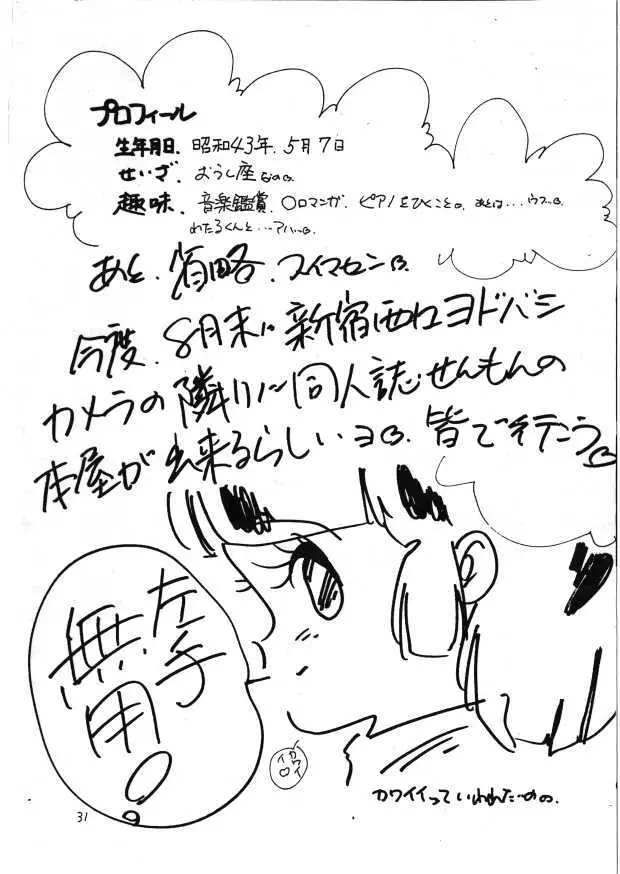 プロフィール
生年月日、昭和43年、5月7日
せいざ、おうし座なの。
趣味、音楽鑑賞、〇ロマンガ、ピアノをひくこと。あとは…ウフッ。
わたるくんと…アハッ。
あと、省略、スイマセン。
今度、8月末に新宿西口ヨドバシ
カメラの隣りに同人誌せんもんの
本屋が出来るらしいヨ。皆で行こう。
左手
無用
カワイイ
カワイイっていわれたいの。
31